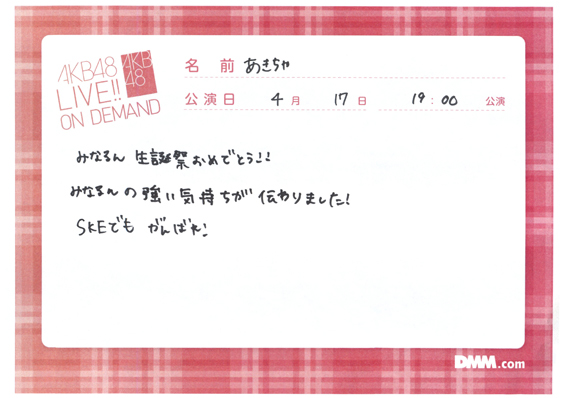 AKB48
LIVE!!
ON DEMAND
AKB
48
名前 あきちゃ
公演日 4月 17日 19:00 公演
みなるん 生誕祭おめでとう!!
みなるんの強い気持ちが伝わりました!
SKEでも がんばれ!
DMM.com